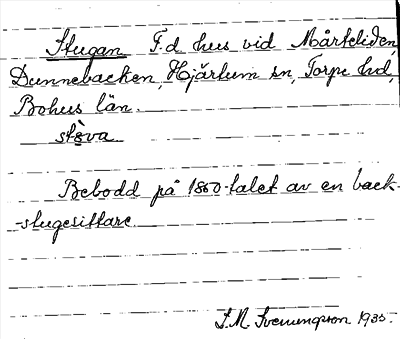 Stugan F.d hus vid Mårteliden,
Dunnebacken, Hjärtum sn, Torpe hd,
Bohus län.
stèva
Bebodd på 1860-talet av en back-
-stugesittare
S.M. Svenungson 1935.